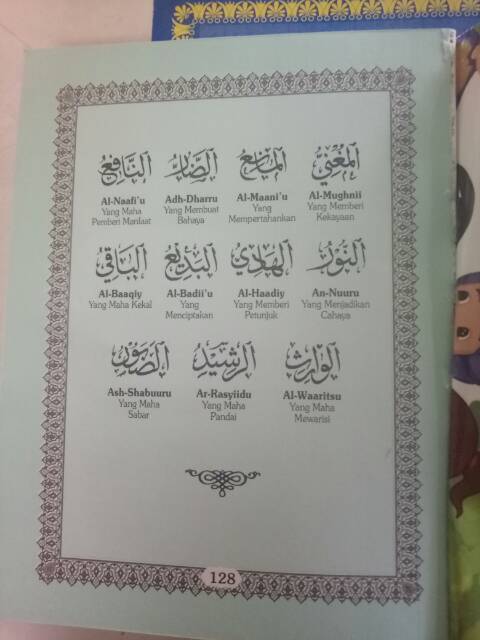 المغني
المانع
الضار
النافع
Al-Mughnii
Yang Memberi
Kekayaan
Al-Maani'u
Yang
Mempertahankan
Adh-Dharru
Yang Membuat
Bahaya
Al-Naafi'u
Yang Maha
Pemberi Manfaat
النور
الهادي
البديع
الباقي
An-Nuuru
Yang Menjadikan
Cahaya
Al-Haadiy
Yang Memberi
Petunjuk
Al-Badii'u
Yang
Menciptakan
Al-Baaqiy
Yang Maha Kekal
الوارث
الرشيد
الصبور
Al-Waaritsu
Yang Maha
Mewarisi
Ar-Rasyiidu
Yang Maha
Pandai
Ash-Shabuuru
Yang Maha
Sabar
128